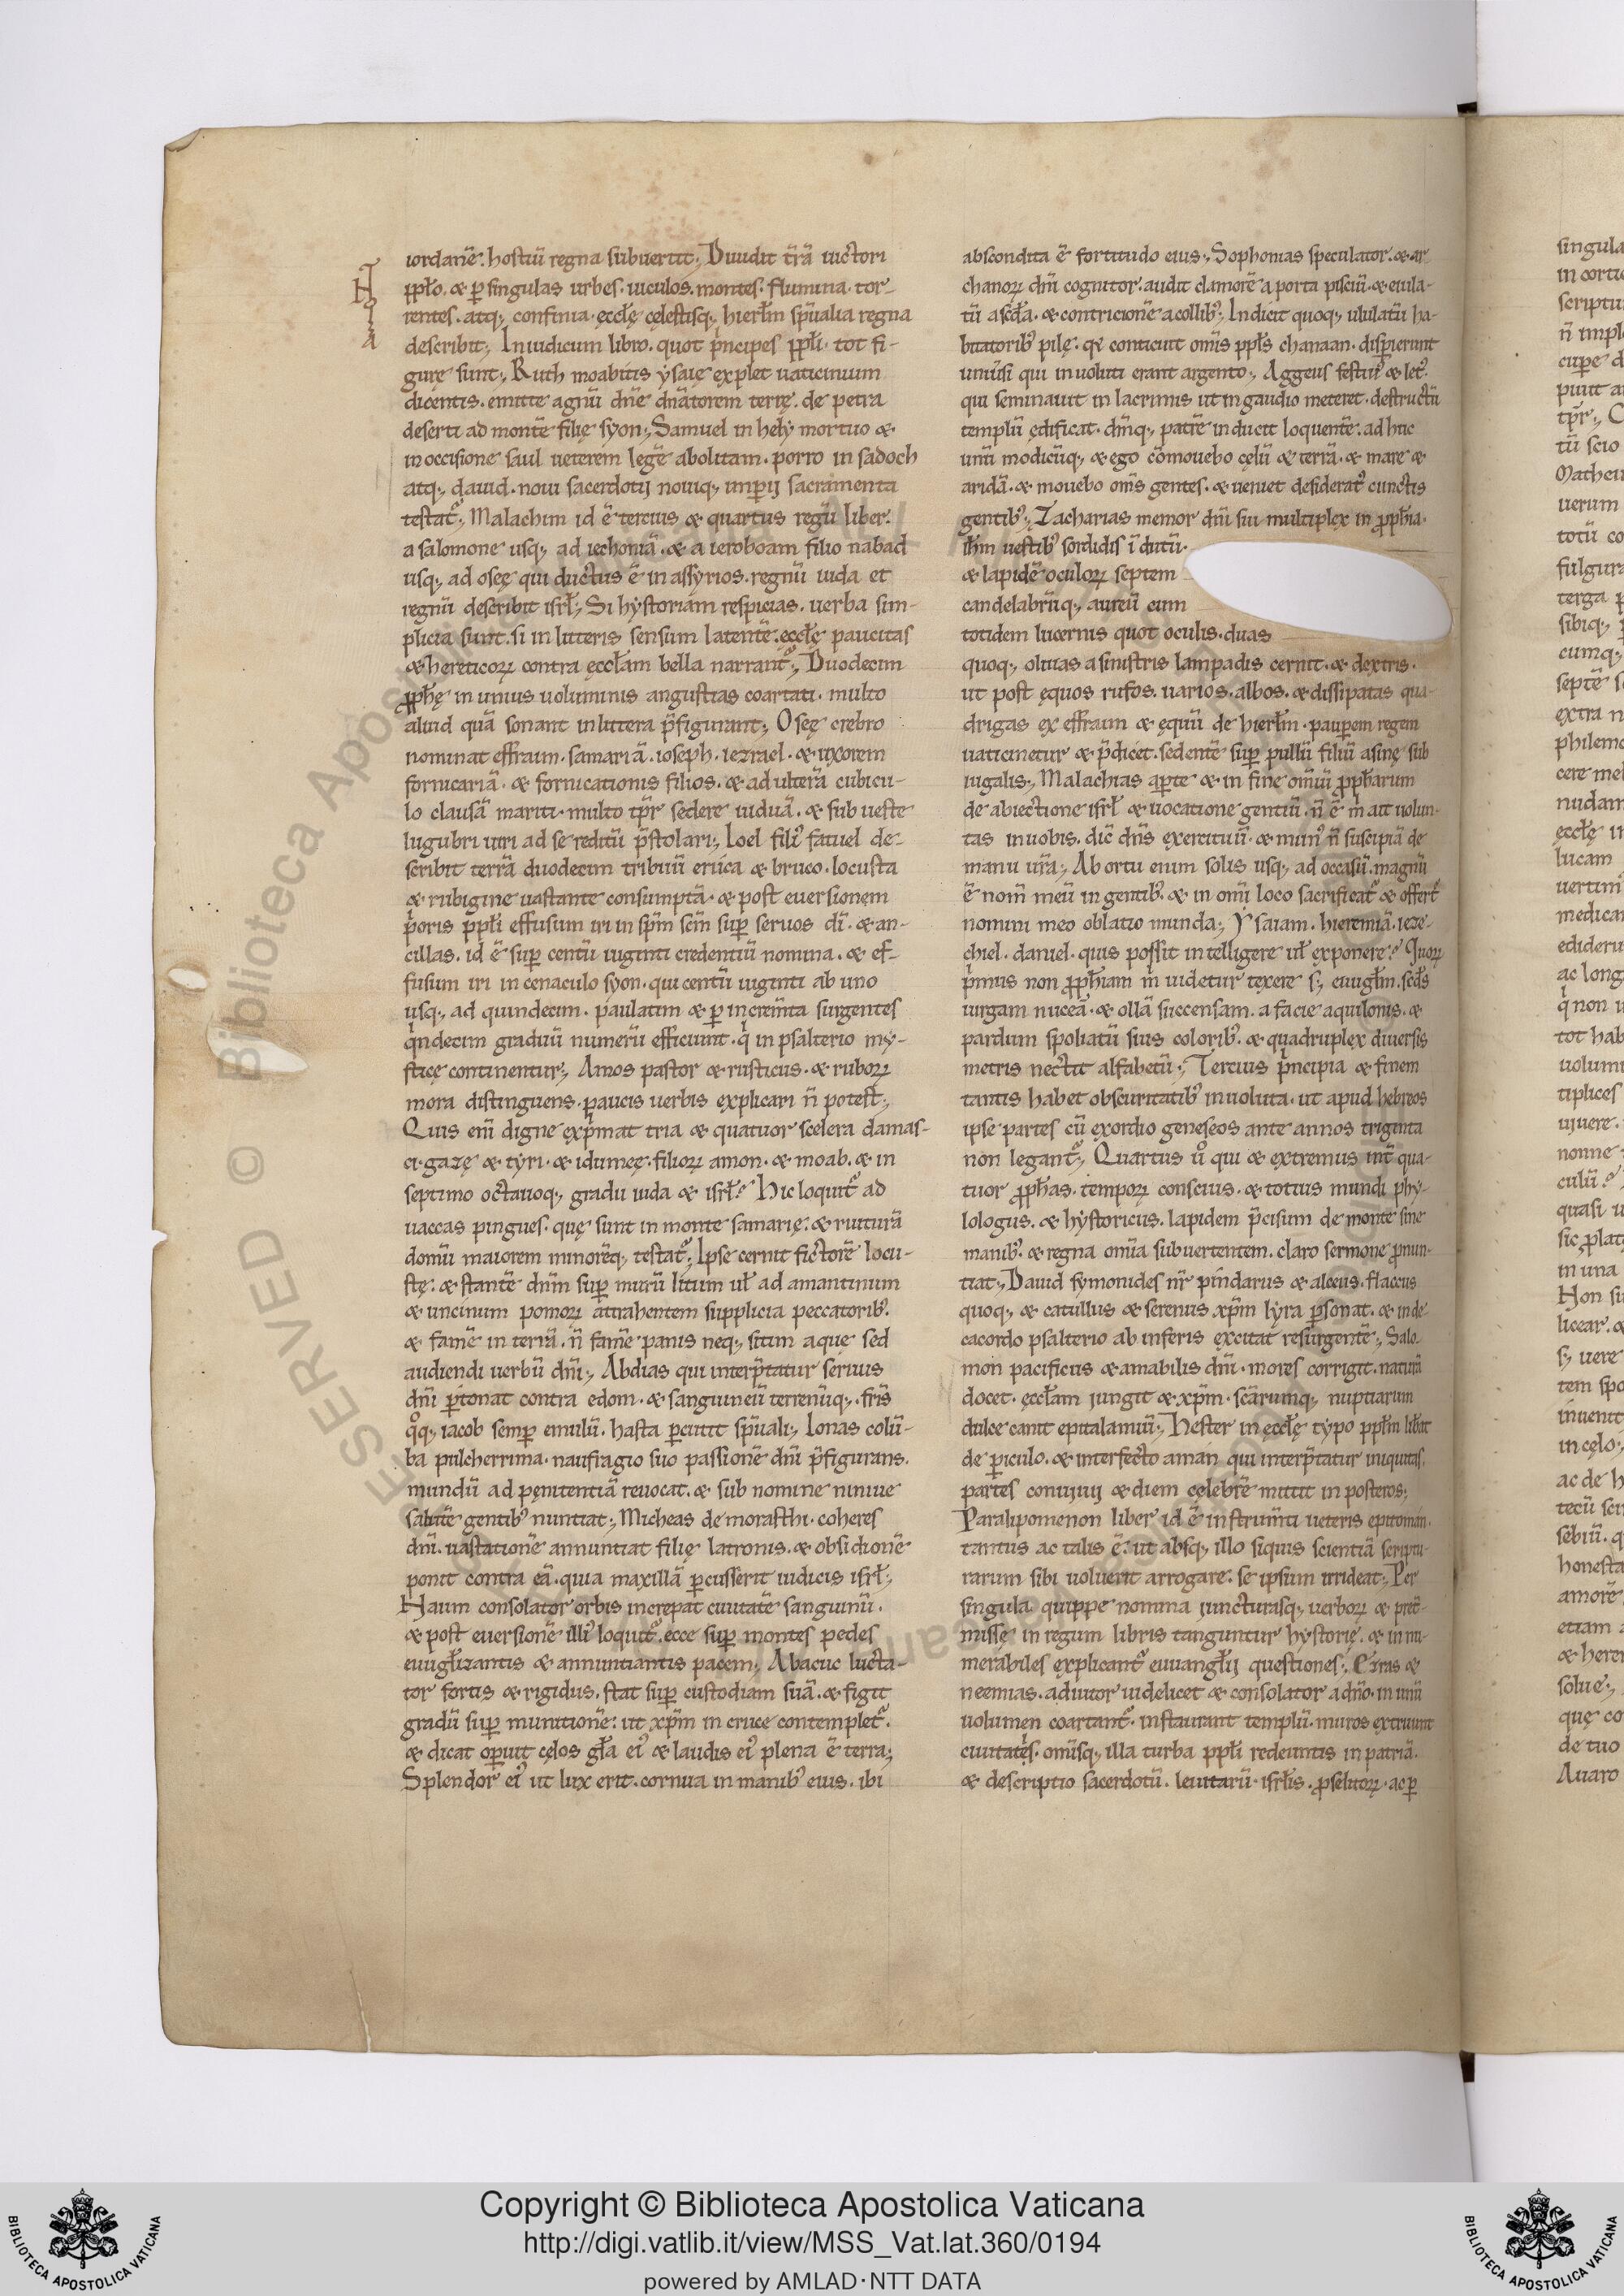 NOTA
iordanē. hostiū regna subuertit; Diuidit t̄rā uictori
pp̄lo. & ꝑ singulas urbes. uiculos. montes. flumina. tor-
rentes. atq; confinia. ęccl̄ę cęlestisq; hierl̄m sp̄ualia regna
describit; In iudicum libro. quot p̄ncipes pp̄li. tot fi-
gurę sunt; Ruth moabitis ysaię explet uaticinium
dicentis. emitte agnū dn̄e dn̄atorem terrę. de petra
deserti ad montē filię syon; Samuel in hely mortuo &
in occisione saul ueterem legē abolitam. porro in sadoch
atq; dauid. noui sacerdotij nouiq; imꝑij sacramenta
testat᷑; Malachim id ē tercius & quartus regū liber.
a salomone usq; ad iechoniā. & a ieroboam filio nabad
usq; ad oseę qui ductus ē in assyrios. regnū iuda et
regnū describit isrl̄; Si hystoriam respicias. uerba sim-
plicia sunt. si in litteris sensum latentē. ęccl̄ę paucitas
& hereticoꝝ contra ęccl̄am bella narrant᷑; Duodecim
ꝓph̄ę in unius uoluminis angustias coartati. multo
aliud quā sonant in littera p̄figurant; Oseę crebro
nominat effraim. samariā. ioseph. iezrael. & uxorem
fornicariā. & fornicationis filios. & adulterā cubicu-
lo clausā mariti. multo tp̄r sedere uiduā. & sub ueste
lugubri uiri ad se reditū p̄stolari; Ioel filiꝰ fatuel de-
scribit terrā duodecim tribuū eruca & bruco. locusta
& rubigine uastante consumptā. & post euersionem
p̄oris pp̄li effusum iri in sp̄m sc̄m suꝑ seruos dī. & an-
cillas. id ē suꝑ centū uiginti credentiū nomina. & ef-
fusum iri in cenaculo syon. qui centū uiginti ab uno
usq; ad quindecim. paulatim & ꝑ increm̄ta surgentes
qͥndecim graduū numerū efficiunt. qͥ in psalterio my-
sticę continentur; Amos pastor & rusticus. & ruboꝝ
mora distinguens. paucis uerbis explicari n̄ potest;
Quis eni̅ digne exp̄mat tria & quatuor scelera damas-
ci. gazę & tyri. & idumeę. filioꝝ amon. & moab. & in
septimo octauoq; gradu iuda & isrl̄? Hic loquit᷑ ad
uaccas pingues. quę sunt in monte samarię: & ruiturā
domū maiorem minorēq; testat᷑; Ipse cernit fictorē locu-
stę: & stantē dn̄m suꝑ murū litum ul̄ adamantinum
& uncinum pomoꝝ attrahentem supplicia peccatoribꝰ.
& famē in terrā. n̄ famē panis neq; sitim aque sed
audiendi uerbū dn̄i; Abdias qui interp̄tatur seruus
dn̄i ꝑtonat contra edom. & sanguineū terrenūq; fr̄is
qͦq; iacob semꝑ emulū. hasta ꝑcutit sp̄uali; Ionas colū-
ba pulcherrima. naufragio suo passionē dn̄i p̄figurans.
mundū ad pęnitentiā reuocat. & sub nomine niniue
salutē gentibꝰ nuntiat; Micheas de morasthi. coheres
dn̄i. uastationē annuntiat filię latronis. & obsidionē
ponit contra eā. quia maxillā ꝑcusserit iudicis isrl̄;
Naum consolator orbis increpat ciuitatē sanguinū.
& post euersionē illiꝰ loquit᷑. ecce suꝑ montes pedes
euugl̄izantis & annuntiantis pacem; Abacuc lucta-
tor fortis & rigidus. stat suꝑ custodiam suā. & figit
gradū suꝑ munitionē: ut xp̄m in cruce contemplet᷑.
& dicat oꝑuit cęlos gl̄a eiꝰ & laudis eiꝰ plena ē terra;
Splendor eiꝰ ut lux erit. cornua in manibꝰ eius. ibi
abscondita ē fortitudo eius; Sophonias speculator. & ar
chanoꝝ dn̄i cognitor. audit clamorē a porta pisciū. & eiula-
tū a sc̄da. & contricionē a collibꝰ; Indicit quoq; ululatū ha-
bitatoribꝰ pilę. qꝛ conticuit om̄is ppl̄s chanaan. disꝑierunt
uniūsi qui inuoluti erant argento; Aggeus festiuꝰ & letꝰ.
qui seminauit in lacrimis ut in gaudio meteret. destructū
templū ędificat. dm̄q; patrē inducit loquentē. adhuc
unū modicūq; & ego cōmouebo cęlū & terrā. & mare &
aridā. & mouebo om̄s gentes. & ueniet desideratꝰ cunctis
gentibꝰ; Zacharias memor dn̄i sui multiplex in ꝓph̄ia.
ih̄m uestibꝰ sordidis īdutū.
& lapidē oculoꝝ septem
candelabrūq; aureū cum
totidem lucernis quot oculis. duas
quoq; oliuas a sinistris lampadis cernit. & dextris.
ut post ęquos rufos. uarios. albos. & dissipatas qua-
drigas ex effraim & ęquū de hierl̄m. pauꝑem regem
uaticinetur & p̄dicet. sedentē suꝑ pullū filiū asinę sub
iugalis; Malachias aꝑte & in fine om̄iū ꝓph̄arum
de abiectione isrl̄ & uocatione gentiū. n̄ ē m̄ ait uolun-
tas in uobis. dic̄ dn̄s exercituū. & munꝰ n̄ suscipiā de
manu ur̄a; Ab ortu enim solis usq; ad occasū. magnū
ē nom̄ meū in gentibꝰ. & in om̄i loco sacrificat᷑ & offert᷑
nomini meo oblatio munda; Ysaiam. hieremiā. ieze-
chiel. daniel. quis possit intelligere ul̄ exponere? Quoꝝ
p̄mus non ꝓph̄iam m̄ uidetur texere s; euugl̄m. sc̄ds
uirgam nuceā. & ollā succensam. a facie aquilonis. &
pardum spoliatū suis coloribꝰ. & quadruplex diuersis
metris nectit alfabetū; Tercius p̄ncipia & finem
tantis habet obscuritatibꝰ inuoluta. ut apud hebreos
ipse partes cū exordio geneseos ante annos triginta
non legant᷑; Quartus uͦ qui & extremus int̄ qua-
tuor ꝓph̄as. tempoꝝ conscius. & totius mundi phy-
lologus. & hystoricus. lapidem p̄cisum de monte sine
manibꝰ. & regna om̄ia subuertentem. claro sermone ꝓnun-
tiat; Dauid symonides nr̄ pindarus & alceus. flaccus
quoq; & catullus & serenus xp̄m lyra ꝑsonat. & in de-
cacordo psalterio ab inferis excitat resurgentē; Salo-
mon pacificus & amabilis dn̄i. mores corrigit. naturā
docet. ęccl̄am jungit & xp̄m. sc̄arumq; nuptiarum
dulce canit epitalamiū; Hester in ęccl̄ę typo ppl̄m lib̄at
de ꝑiculo. & interfecto aman qui interp̄tatur iniquitas.
partes conuiuij & diem cęlebrē mittit in posteros;
Paralipomenon liber id ē instrum̄ti ueteris epitoman.
tantus ac talis ē: ut absq; illo siquis scientiā scriptu-
rarum sibi uoluerit arrogare: se ipsum irrideat; Per
singula quippe nomina juncturasq; uerboꝝ & pret̄-
missę in regum libris tanguntur hystorię. & innu-
merabiles explicant᷑ euuangl̄ij questiones; Ezras &
neemias. adiutor uidelicet & consolator a dn̄o. in unū
uolumen coartant᷑. instaurant templū. muros extruunt
ciuitatis. om̄isq; illa turba ppl̄i redeuntis in patriā.
& descriptio sacerdotū. leuitarū. isrl̄is. ꝓselitoꝝ. ac ꝑ
singula
in cortic
scriptu
n̄ impl
cuꝑe d
piuit a
tp̄r;
tū scio
Matheu
uerum
totū co
fulgura
terga
sibiq;
cumq;
septē s
extra n
philemo
cere mel
nudam
ęccl̄ę in
lucam
uertimꝰ
medicam
edideru
ac long
qͥ non u
tot hab
uolumi
tiplices
uiuere.
nonne
culū?
quasi u
sic plat
in una
Non su
licear. &
s; uere
tem spo
inuenit
in cęlo;
ac de h
tecū sci
sebiū. q
honesta
amorē
etiam a
& heren
solue;
quę co
de tuo
Auaro
© Biblioteca Apostolica Vaticana
Copyright © Biblioteca Apostolica Vaticana
http://digi.vatlib.it/view/MSS_Vat.lat.360/0194
powered by AMLAD·NTT DATA
BIBLIOTECA APOSTOLICA VATICANA
BIBLIOTECA APOSTOLICA VATICANA